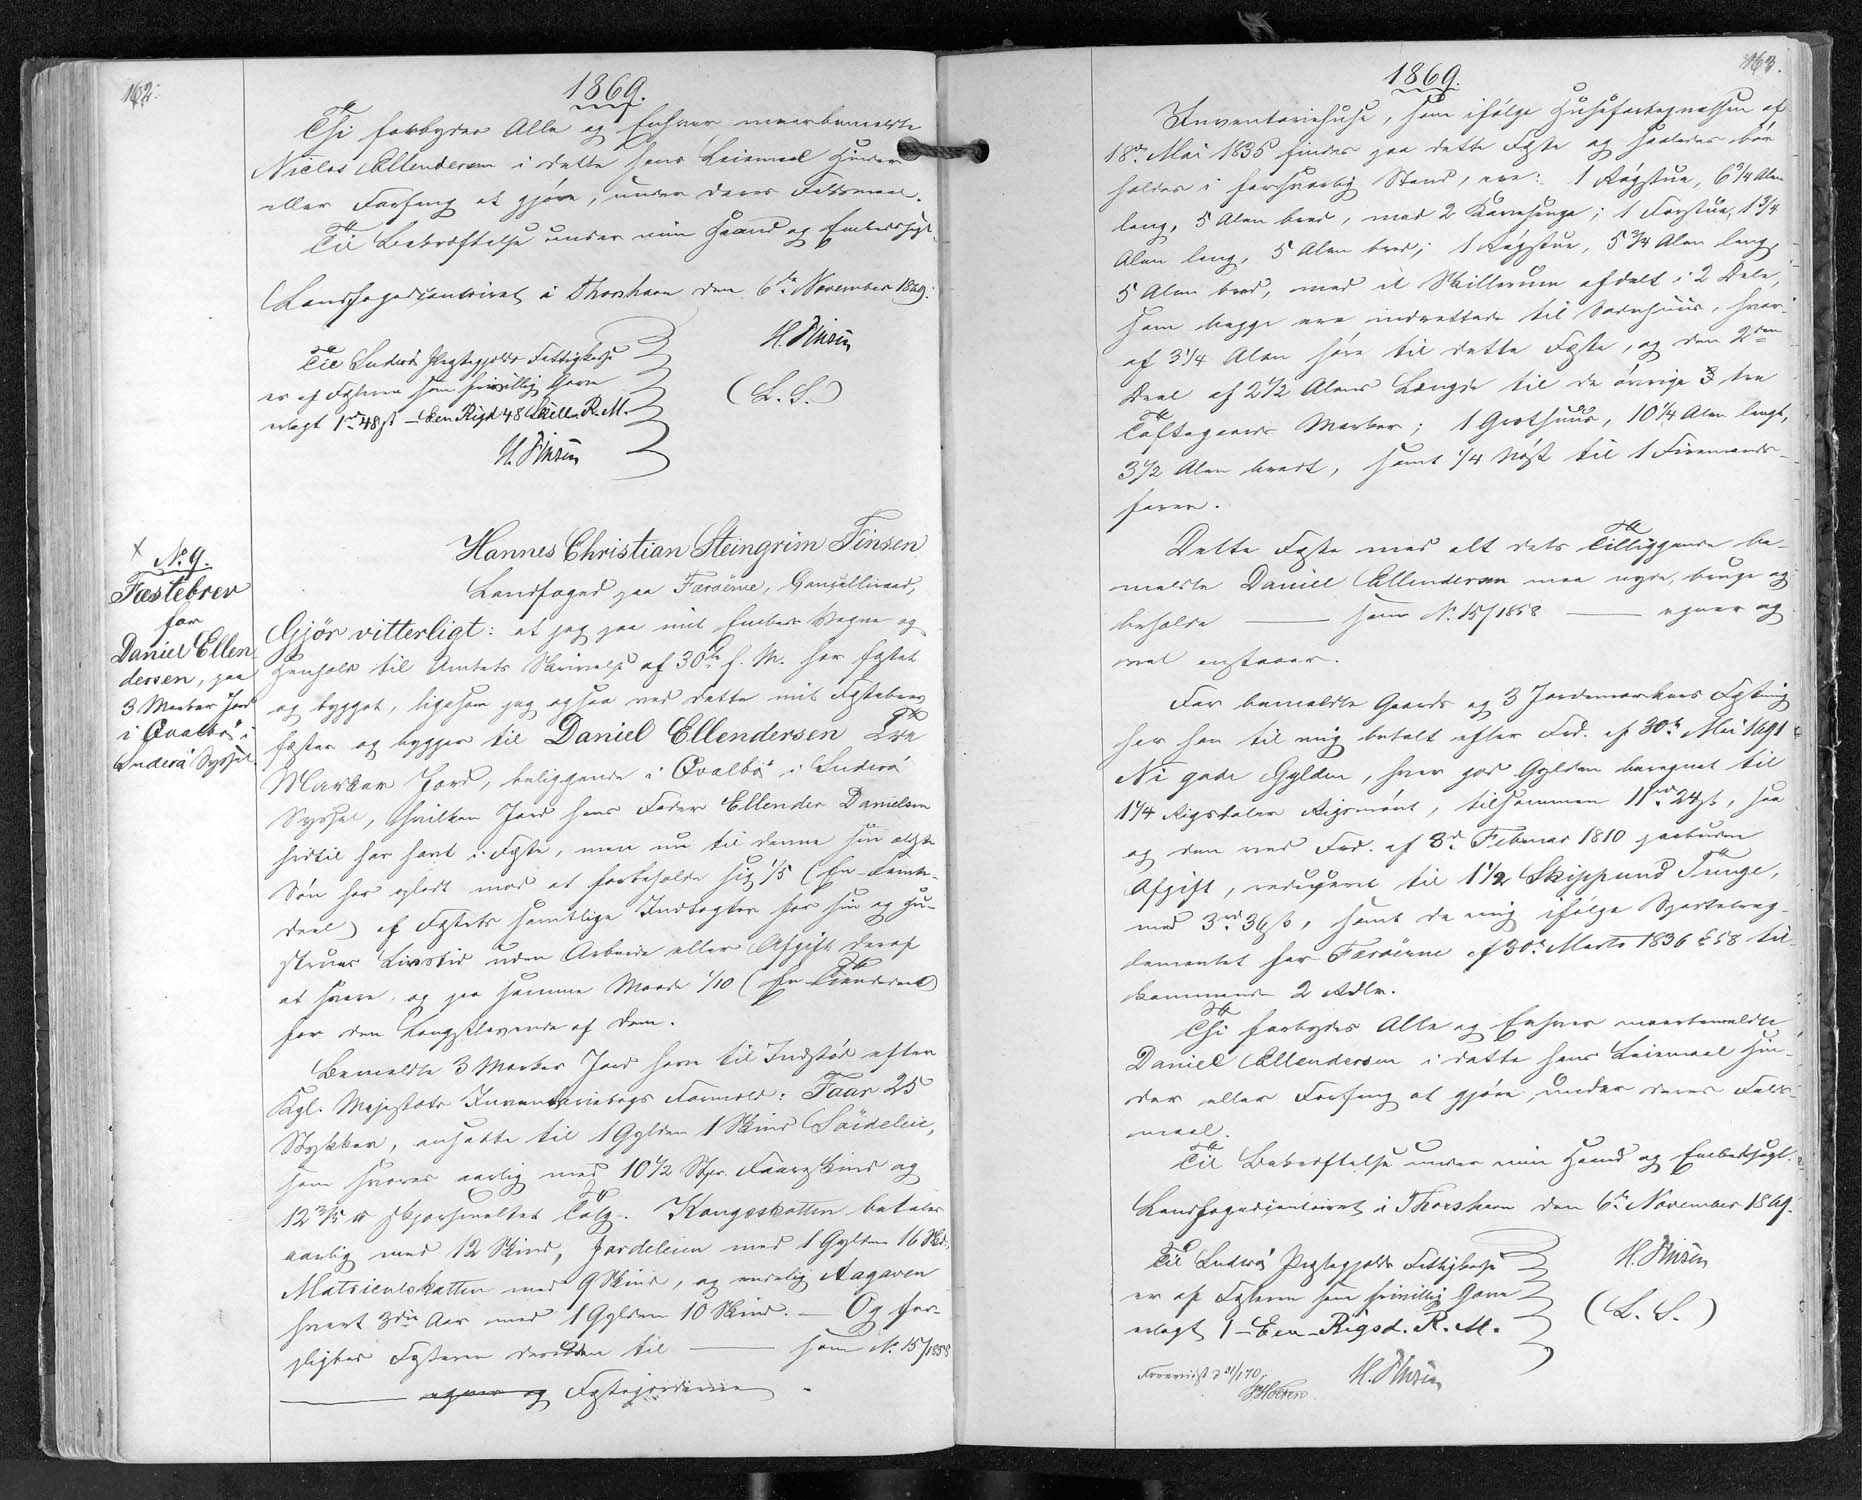 162.
1869.
Thi forbydes Alle og Enhver meerbemeldte
Niclas Ellendersen i dette hans Leiemaal Hinder
eller Forfang at gjøre, under deres Faldsmaal.
Til Bekræftelse under min Haand og Embedssegl.
Landfogedcontoiret i Thorshavn den 6te November 1869.
H. Finsen
(L. S.)
Til Suderø Præstegjelds Fattigkasse
er af Fæsteren som frivillig Gave
erlagt 1rd 48ß – Een Rigd 48 Skill. R. M.
H. Finsen
No 9.
Fæstebrev
for
Daniel Ellen-
dersen, paa
3 Marker Jord
i Qvalbø i
Suderø Syssel.
Hannes Christian Steingrim Finsen
Landfoged paa Færøerne, Cancelliraad,
Gjör vitterligt: at jeg paa mit Embeds Vegne og
Henhold til Amtets Skrivelse af 30te f. M. har fæstet
og bygget, ligesom jeg ogsaa ved dette mit Fæstebrev
fæster og bygger til Daniel Ellendersen Tre
Marker Jord, beliggende i Qvalbø i Suderø
Syssel, hvilken Jord hans Fader Ellender Danielsen
hidtil har havt i Fæste, men nu til denne sin ældste
Søn har opladt mod at forbeholde sig 1/5 (En Femte-
deel) af Fæstets samtlige Indtægter for sin og Hu-
struens Livstid uden Arbeide eller Afgift deraf
at svare, og paa samme Maade 1/10 (En Tiendedeel)
for den Længstlevende af dem.
Bemeldte 3 Marker Jord have til Indstød efter
Kgl. Majestæts Inventariebogs Formeld: Faar 25
Stykker, ansatte til 1 Gylden 1 Skind Søideleie,
som svares aarlig med 10 1/2 Stkr. Faareskind og
12 3/5 ℔ skjærsmeltet Tælg. Kongsskatten betales
aarlig med 12 Skind, Jordeleien med 1 Gylden 16 Skd.,
Matriculskatten med 9 Skind, og endelig Aagaven
hvert 3die Aar med 1 Gylden 10 Skind. – Og for-
pligtes Fæsteren desuden til — som No 15/1858
— egner og Fæstejorderne
163.
1869.
Inventariehuse, som ifølge Huusfortegnelsen af
18de Mai 1835 findes paa dette Fæste og saaledes bør
holdes i forsvarlig Stand, ere: 1 Røgstue, 6 3/4 Alen
lang, 5 Alen bred, med 2 Karresenge; 1 Forstue, 1 3/4
Alen lang, 5 Alen bred; 1 Røgstue, 5 3/4 Alen lang,
5 Alen bred, med et Skillerum afdelt i 2 Dele,
som begge ere indrettede til Sornhuus, hvor-
af 3 1/4 Alen høre til dette Fæste, og den 2den
Deel af 2 1/2 Alens Længde til de øvrige 3 tre
Toftegaards Marker; 1 Grothuus, 10 1/4 Alen langt,
3 1/2 Alen bredt, samt 1/4 Nøst til 1 Firemands-
farer.
Dette Fæste med alt dets Tilliggende be-
meldte Daniel Ellendersen maa nyde, bruge og
beholde — som No 15/1858 — egner og
vel anstaaer.
For bemeldte Gaards og 3 Jordemarkers Fæstning
har han til mig betalt efter Frd. af 30te Mai 1691
Ni gode Gylden, hver god Gylden beregnet til
1 1/4 Rigsdaler Rigsmønt, tilsammen 11rd 24ß, saa
og den ved Frd. af 8de Februar 1810 paabudne
Afgift, reduceret til 1 1/2 Skippund Tunge,
med 3rd 36ß, samt de mig ifølge Sportelreg-
lementet for Færøerne af 30te Marts 1836 § 58 til-
kommende 2 Rdlr.
Thi forbydes Alle og Enhver meerbemeldte
Daniel Ellendersen i dette hans Leiemaal Hin-
der eller Forfang at gjøre, under deres Falds-
maal.
Til Bekræftelse under min Haand og Embedssegl.
Landfogedcontoiret i Thorshavn den 6te November 1869.
H. Finsen
(L. S.)
Til Suderø Præstegjelds Fattigkasse
er af Fæsteren som frivillig Gave
erlagt 1 – Een – Rigsd. R. M.
H. Finsen